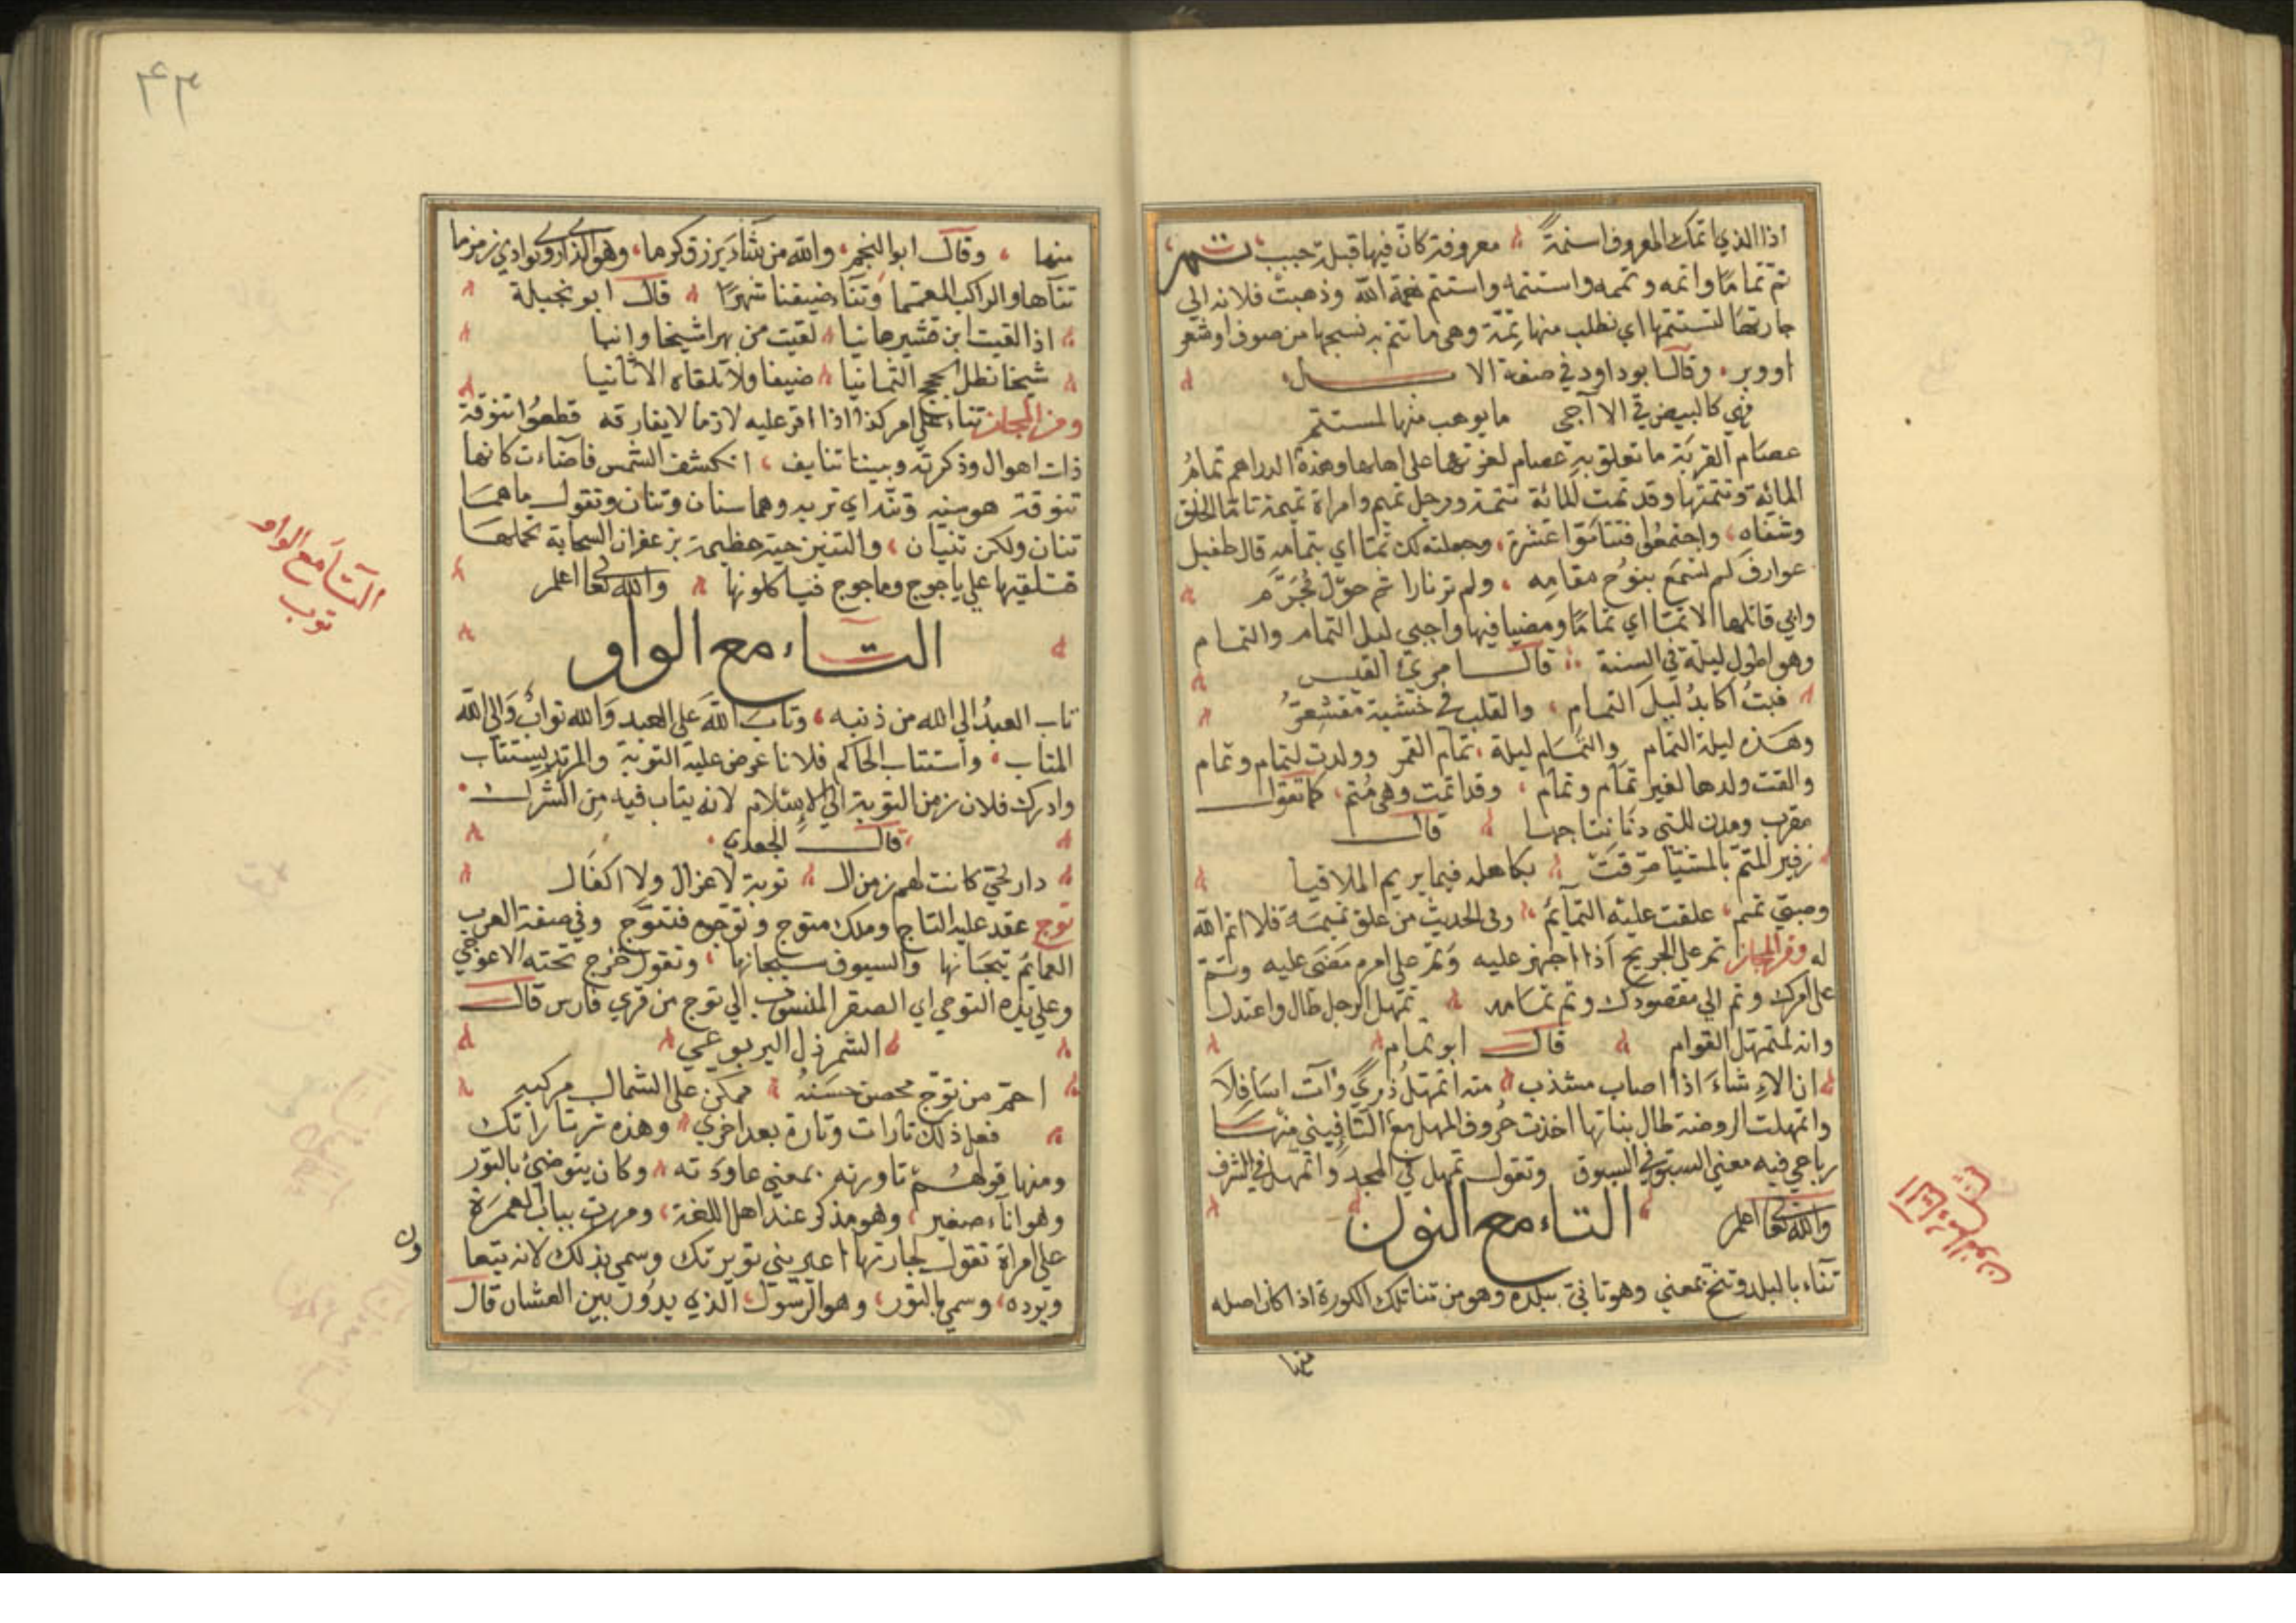 اذا الذي اتمك المعروف اسنمة معروفة كان فيها قبلة حبيب تمم
تم تماما واتمه وتممه واستتمه واستتم نعمة الله وذهبت فلانه الي
جارتها لتستتمها اي تطلب منها تمة وهي ما تتم به نسجها من صوف او شعر
او وبر وقال ابو داود في صفة الابل
فهي كالبيض في الاآجي ما يوهب منها لمستتم
عصام القربة ما تعلق به عصام لعزتها على اهلها وهذه الدراهم تمام
المائة وتتمتها وقد تمت المائة تتمة ورجل تميم وامراة تميمة تاما الخلق
وشفاه واجتمعوا فتتاموا عشرة وجعلته لك تما اي بتمامه قال طفيل
عوارف لم تسمع بنوح مقامه ولم تر نارا تم حول مجرم
وابي قائلها الا تما اي تماما ومضيا فيها واجبي ليل التمام والتمام
وهو اطول ليلة في السنة قال امرئ القيس
فبت اكابد ليل التمام والقلب في خشية مقشعر
وهذه ليلة التمام والتمام ليلة تمام القمر وولدت لتمام وتمام
والقت ولدها لغير تمام وتمام وقد اتمت وهي متم كما تقول
مقرب ومدن للتي دنا نتاجها قال
زفير المتم بالمشيا طرقت بكاهله فيما يريم الملاقيا
وصبي تمم علقت عليه التمائم وفي الحديث من علق تميمة فلا اتم الله
له ومن المجاز تم على الجريح اذا اجهز عليه وتم على امره مضى عليه وتم
على امرك وتم الي مقصودك وتم تمامه تمهل الرجل طال واعتدل
وانه لمتمهل القوام قال ابو تمام
ان الاء شاء اذا اصاب مشذب منه اتمهل ذري واث اسافلا
واتمهلت الروضة طال بناتها اخذت حروف المهل مع التا فبني منها
رباعي فيه معني السبق في السبوق وتقول تمهل في المجد واتمهل في الشرف
والله تعا اعلم التاء مع النون
تناء بالبلد وتنخ بمعني وهو تانئ ببلده وهو من تنا تلك الكورة اذا كان اصله
منها
منها وقال ابو النجم والله من يشاء يرزق كرما وهو الذاروي بوادي زمزما
تناها والراكب المعتما وتناء ضيفنا شهرا قال ابو نجيلة
اذا لقيت ابن قشير هانيا لقيت من بهرا شيخا وانيا
شيخا نظل الحجج الثمانيا ضيفا ولا تلقاه الا تانيا
ومن المجاز تناء علي امر كذا اذا اقر عليه لازما لا يفارقه قطعوا تنوفة
ذات اهوال وذكرته وبيننا تنايف انكشفت الشمس فاضاءت كانها
تنوفة هو سنه وتنه اي تربه وهما سنان وتنان وتقول ما هما
تنان ولكن تنينان والتنين حية عظيمة يزعم ان السحابة تحملها
فتلقيها علي ياجوج وماجوج فياكلونها والله تعا اعلم
التاء مع الواو
تاب العبد الي الله من ذنبه وتاب الله على العبد والله تواب والي الله
المتاب واستتاب الحاكم فلانا عرض عليه التوبة والمرتد يستتاب
وادرك فلان زمن التوبة اي الاسلام لانه يتاب فيه من الشرك
قال الجعدي
دار لحي كانت لهم زمن ال توبة لا عزال ولا اكفال
توج عقد عليه التاج وملك متوج وتوجوه فتتوج وفي صفة العرب
العمائم تيجانها والسيوف سيجانها وتقول خرج تحته الاعوجي
وعلي يده التوجي اي الصقر المنسوب الي توج من قري فارس قال
الشمرذل اليربوعي
احم من توج محصن حسنه ممكن على الشمال مركبه
فعل ذلك تارات وتارة بعد اخري وهذه تر تاراتك
ومنها قولهم تاورته بمعني عاودته وكان يتوضئ بالتور
وهو اناء صغير وهو مذكر عند اهل اللغة ومررت بباب العمرة
على امراة تقول لجارتها اعيريني تويرتك وسمي بذلك لانه يتعا
ويرده وسمي بالتور وهو الرسول الذي يدور بين العشاق قال
التا مع الواو
توب
ون